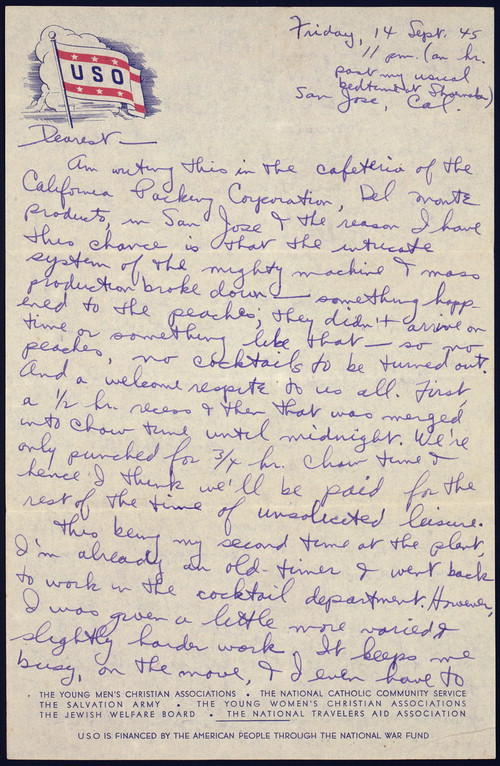 USO
Friday, 14 Sept. 45
11 pm. (an hr.
past my usual
bedtime at Shoemaker)
San Jose, Cal.
Dearest —
Am writing this in the cafeteria of the
California Packing Corporation, Del Monte
products, in San Jose & the reason I have
this chance is that the intricate
system of the mighty machine & mass
production broke down — something happ-
ened to the peaches; they didn't arrive on
time or something like that — so no
peaches, no cocktails to be turned out.
And a welcome respite to us all. First,
a 1/2 hr. recess & then that was merged
into chow time until midnight. We're
only punched for 3/4 hr. chow time &
hence I think we'll be paid for the
rest of the time of unsolicited leisure.
This being my second time at the plant,
I'm already an old-timer & went back
to work in the cocktail department. However,
I was given a little more varied &
slightly harder work. It keeps me
busy, on the move, & I even have to
• THE YOUNG MEN'S CHRISTIAN ASSOCIATIONS • THE NATIONAL CATHOLIC COMMUNITY SERVICE
THE SALVATION ARMY • THE YOUNG WOMEN'S CHRISTIAN ASSOCIATIONS
THE JEWISH WELFARE BOARD • THE NATIONAL TRAVELERS AID ASSOCIATION
USO IS FINANCED BY THE AMERICAN PEOPLE THROUGH THE NATIONAL WAR FUND